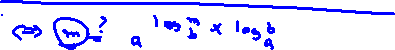 ⇔ m =? a^{log_b^m × log_a^b}